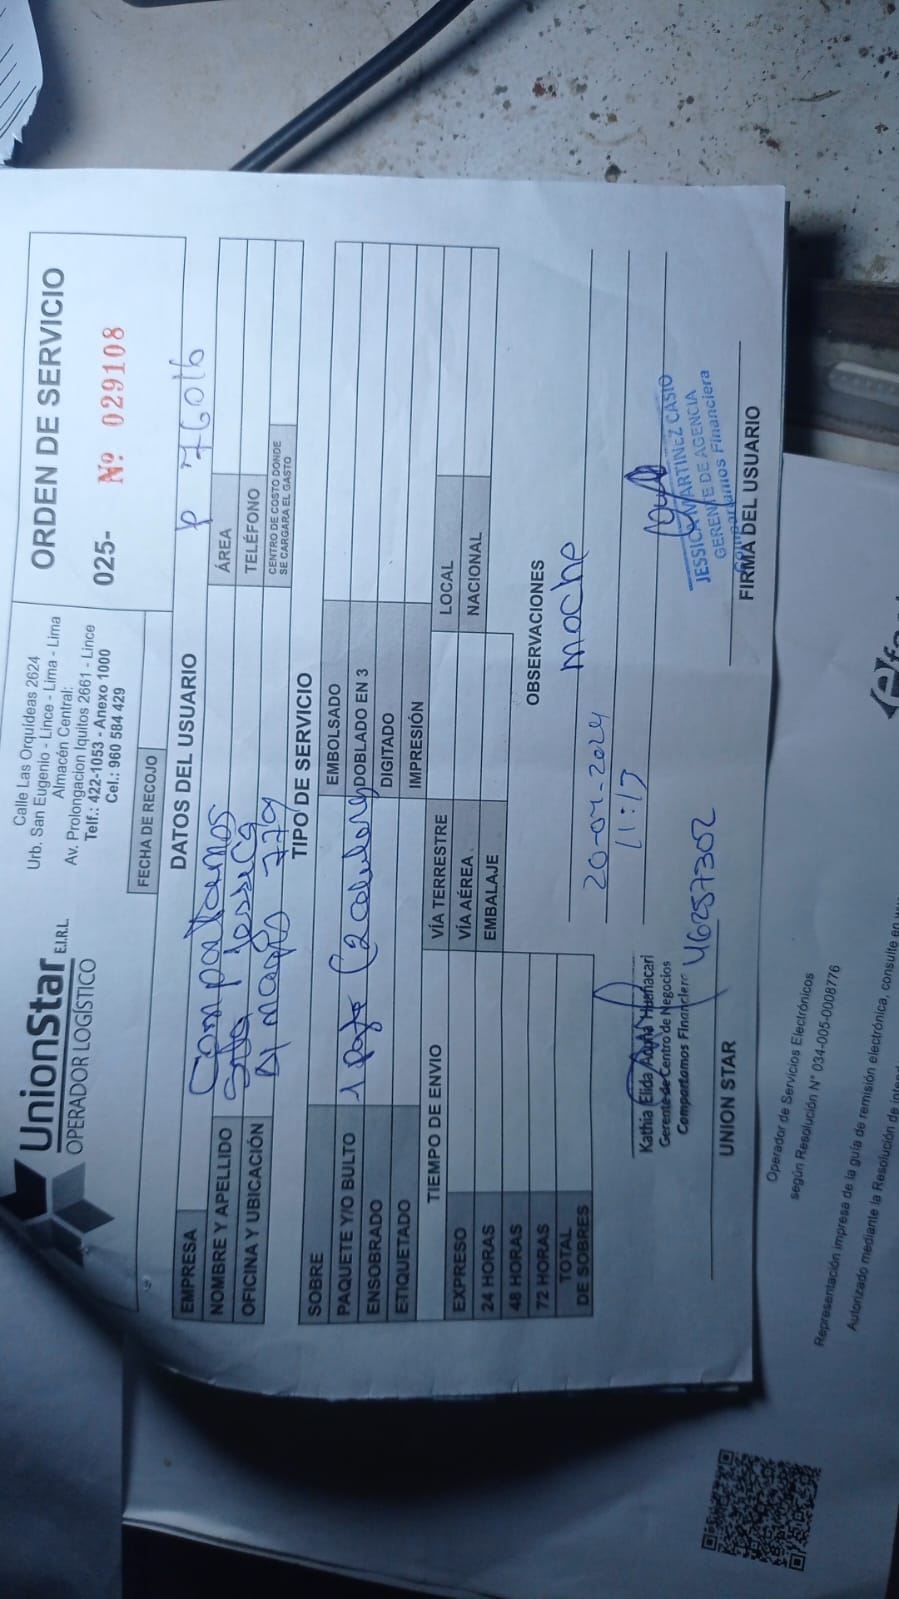 UnionStar E.I.R.L.
OPERADOR LOGÍSTICO
Calle Las Orquídeas 2624
Urb. San Eugenio - Lince - Lima - Lima
Almacén Central:
Av. Prolongacion Iquitos 2661 - Lince
Telf.: 422-1053 - Anexo 1000
Cel.: 960 584 429
ORDEN DE SERVICIO
025- Nº 029108
FECHA DE RECOJO
DATOS DEL USUARIO
P 76016
EMPRESA Compartamos
NOMBRE Y APELLIDO Jessica
ÁREA
OFICINA Y UBICACIÓN 779
TELÉFONO
CENTRO DE COSTO DONDE
SE CARGARA EL GASTO
TIPO DE SERVICIO
SOBRE
EMBOLSADO
PAQUETE Y/O BULTO 1
DOBLADO EN 3
ENSOBRADO
DIGITADO
ETIQUETADO
IMPRESIÓN
TIEMPO DE ENVIO
VÍA TERRESTRE
LOCAL
EXPRESO
VÍA AÉREA
NACIONAL
24 HORAS
EMBALAJE
48 HORAS
72 HORAS
TOTAL
DE SOBRES
OBSERVACIONES
Moche
11:17
Kathia Elida Huanacari
Gerente de Centro de Negocios
Compartamos Financiera
46257302
UNION STAR
JESSICA MARTINEZ CASIO
GERENTE DE AGENCIA
Compartamos Financiera
FIRMA DEL USUARIO
Operador de Servicios Electrónicos
según Resolución N° 034-005-0008776
Representación impresa de la guía de remisión electrónica, consulte en
Autorizado mediante la Resolución de